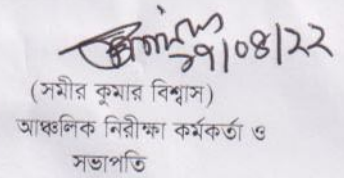 ২৭/০৪/২২
(সমীর কুমার বিশ্বাস)
আঞ্চলিক নিরীক্ষা কর্মকর্তা ও
সভাপতি